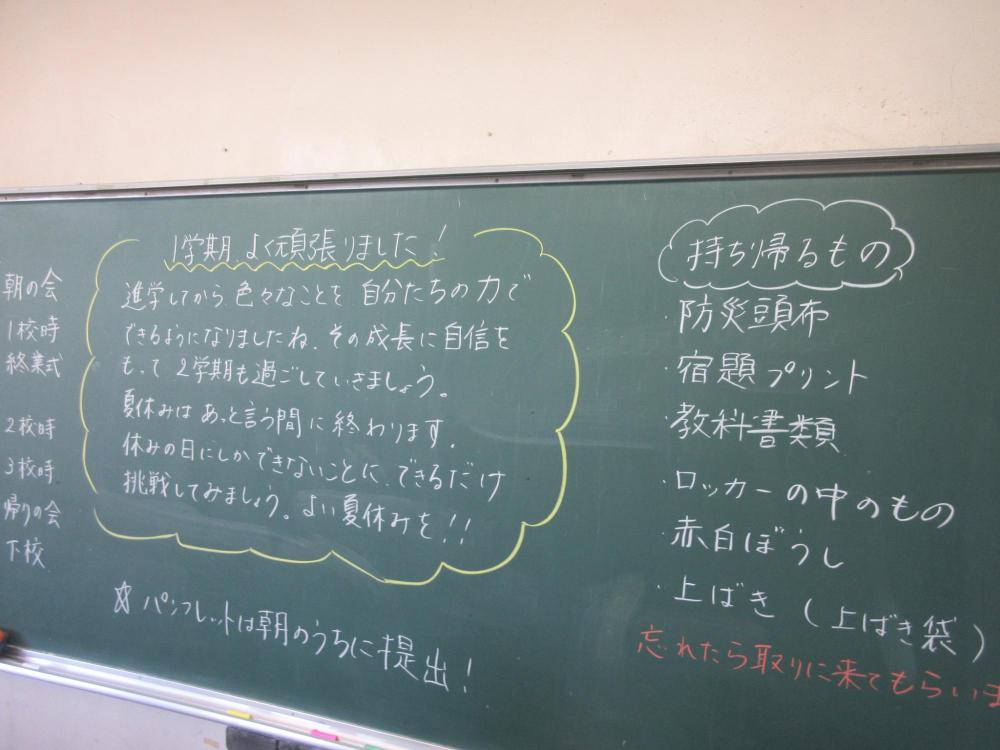 朝の会
1校時
終業式
2校時
3校時
帰りの会
下校
1学期 よく頑張りました!
進学してから 色々なことを 自分たちの力で
できるようになりましたね、その成長に自信を
もって 2学期も過ごしていきましょう。
夏休みは あっと言う間に終わります。
休みの日にしかできないことに、できるだけ
挑戦してみましょう。よい夏休みを!!
☆パンフレットは朝のうちに提出!
持ち帰るもの
・防災頭布
・宿題プリント
・教科書類
・ロッカーの中のもの
・赤白ぼうし
・上ばき(上ばき袋)
忘れたら取りに来てもらいま